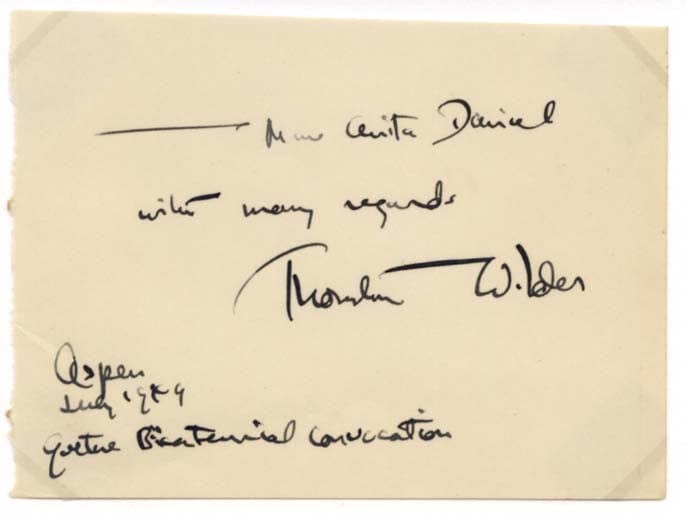 — Anita Daniel
with many regards
Thornton Wilder
Aspen
July 1949
Goethe Bicentennial Convocation